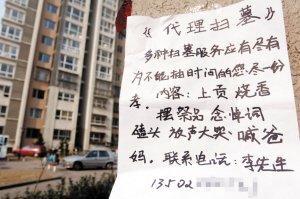 《代理扫墓》
多种扫墓服务应有尽有
为不能抽时间的您尽一份
孝。内容：上贡烧香
摆祭品 念悼词
磕头 放声大哭、喊爸
妈。联系电话：李先生
13502